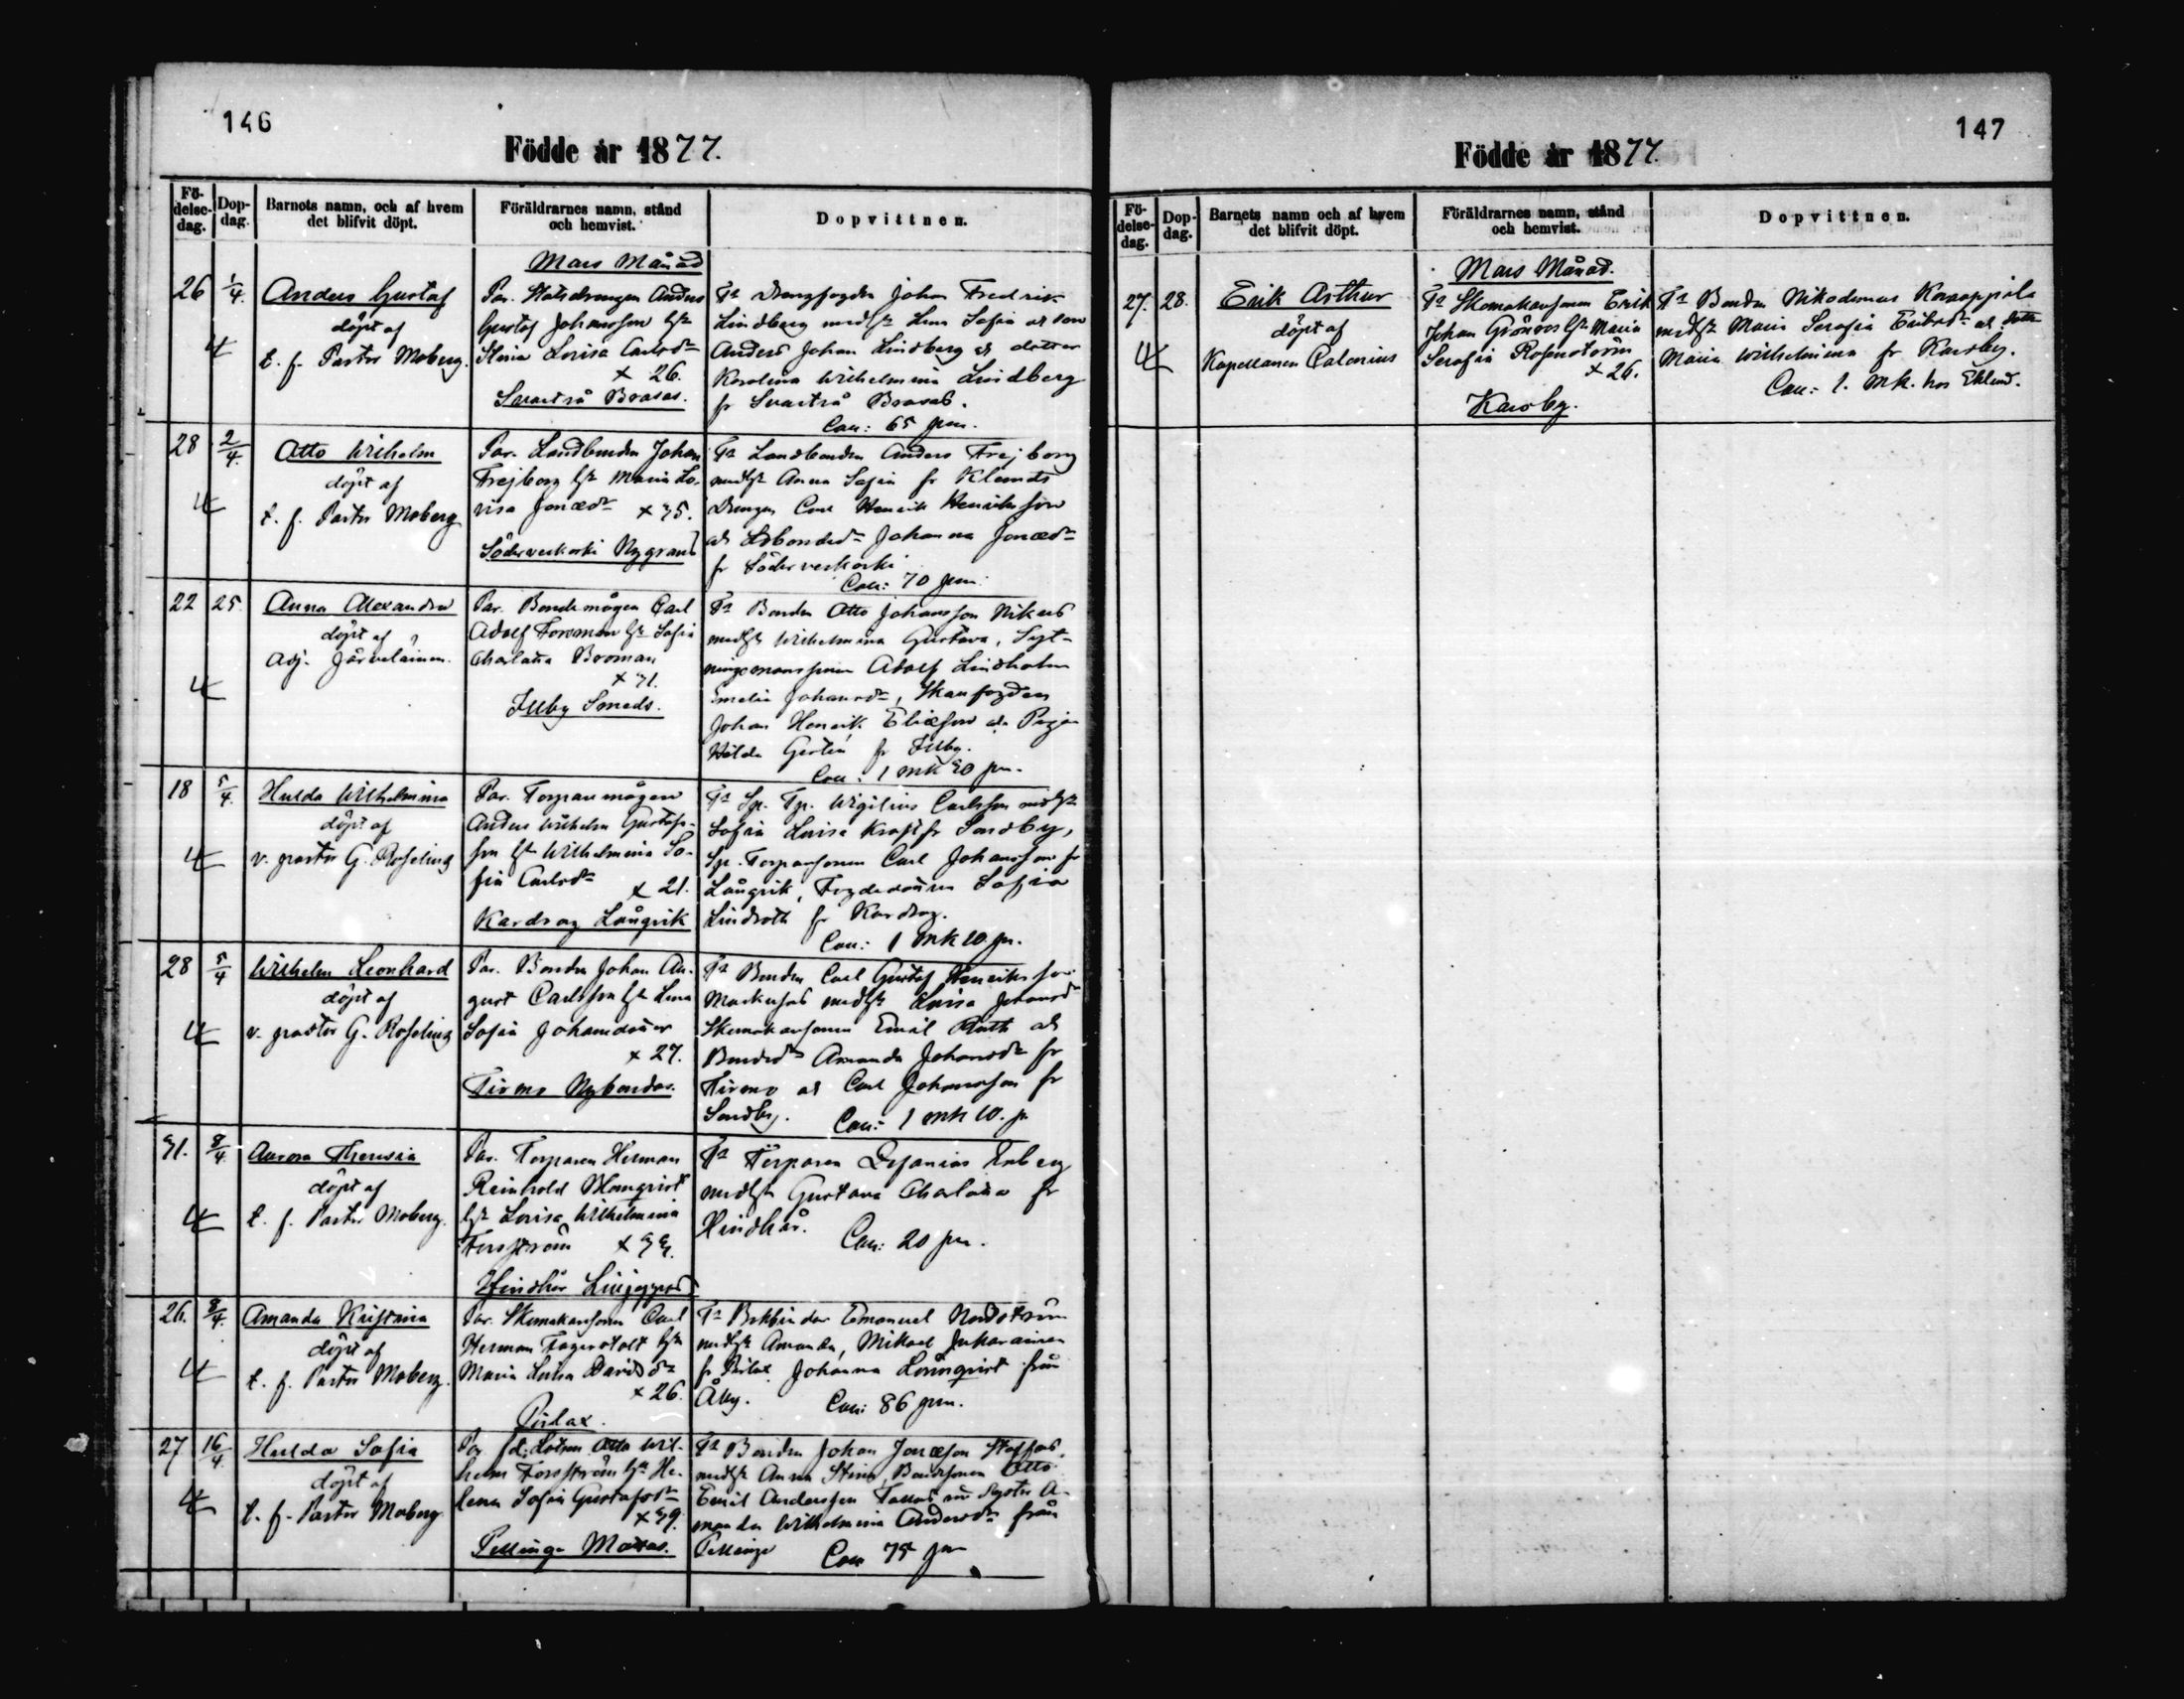 146
Födde år 1877.
Fö-
delse-
dag.
Dop-
dag.
Barnets namn, och af hvem
det blifvit döpt.
Föräldrarnes namn, stånd
och hemvist.
Dopvittnen.
Mars Månad
26 1/4.
Anders Gustaf
döpt af
t. f. Pastor Moberg.
Par. Statsdrengen Anders
Gustaf Johansson hst
Stina Lovisa Carlsdr
x 26.
Svartså Brasas.
Fa Drengfogden Johan Fredrik
Lindberg medhst Lena Sofia son
Anders Johan Lindberg dotter
Karolina Wilhelmina Lindberg
fr Svartså Brasas.
Coll: 65 pen.
28 2/4.
Otto Wilhelm
döpt af
t. f. Pastor Moberg
Par. Landbonden Johan
Frejborg hst Maria Lo-
visa Jonasdr x 35.
Söderveckoski Nygrans
Fa Landbonden Anders Frejborg
medhst Anna Sofia fr Klemets
Drengen Carl Henrik Henriksson
Johanna Jonasdr
fr Söderveckoski
Coll: 70 pen.
22 25.
Anna Alexandra
döpt af
Adj. Järveläinen.
Par. Bondemågen Carl
Adolf Forsman hst Sofia
Charlotta Broman
x 31.
Illby Smeds.
Fa Bonden Otto Johansson Nikus
medhst Wilhelmina Gustava, Syt-
ningsmanssonen Adolf Lindholm
Emelia Johansdr, Skaufogden
Johan Henrik Eliasson Pigan
Hilda Gestin fr Illby.
Coll: 1 mk 30 pen.
18 5/4.
Hulda Wilhelmina
döpt af
v. pastor G. Roseling
Par. Torparmågen
Anders Wilhelm Gustafs-
son hst Wilhelmina So-
fia Carlsdr
x 21.
Kardrag Långvik
Fa Sp. Tp. Wigilius Carlsson medhst
Sofia Lovisa Kraft fr Sandby,
Sp. Torparsonen Carl Johansson fr
Långvik, Sofia
Lindroth fr Kardrag.
Coll: 1 mk 10 pn.
28 5/4
Wilhelm Leonhard
döpt af
v. pastor G. Roseling
Par. Bonden Johan Au-
gust Carlsson hst Lena
Sofia Johansdotter
x 27.
Tirmo Nybondas.
Fa Bonden Carl Gustaf Henriksson
Markusas medhst Lovisa Johansdr
Skomakarsonen Emil Ruth
Bondedr Amanda Johansdr fr
Tirmo Carl Johansson fr
Sandby. Coll: 1 mk 10. p
31. 8/4.
Aurora Theresia
döpt af
t. f. Pastor Moberg.
Par. Torparen Herman
Reinhold Blomqvist
hst Lovisa Wilhelmina
Forsström x 33.
Hindhår
Fa Torparen Enberg
medhst Gustava Charlotta fr
Hindhår.
Coll: 20 pen.
26. 8/4.
Amanda Kristina
döpt af
t. f. Pastor Moberg.
Par. Skomakarsonen Carl
Herman Fagerstolt hst
Maria Lovisa Davidsdr
x 26.
Pirlax.
Fa Bokbindar Emanuel Nordström
medhst Amanda, Mikael Juharainen
fr Pirlax Johanna Lönnqvist från
Åby. Coll: 86 pen.
27 16/4.
Hulda Sofia
döpt af
t. f. Pastor Moberg
Par. fd. Lotsen Otto Wil-
helm Forsström hst He-
lena Sofia Gustafsdr
x 39.
Pellinge
Fa Bonden Johan Jonasson Staffas,
medhst Anna Stina, Bondesonen Otto
Emil Andersson Tallas Syster A-
manda Wilhelmina Andersdr från
Pellinge Coll 75 pen
147
Födde år 1877.
Fö-
delse-
dag.
Dop-
dag.
Barnets namn och af hvem
det blifvit döpt.
Föräldrarnes namn, stånd
och hemvist.
Dopvittnen.
Mars Månad.
27. 28.
Erik Arthur
döpt af
Kapellanen Calonius
Fa Skomakarsonen Erik
Johan Grönroos hst Maria
Serafia Rosenström
x 26.
Karsby.
Fa Bonden Nikodemus Korsappila
medhst Maria Serafia Eriksdr
Maria Wilhelmina fr Karsby.
Coll: 1. mk. hos Eklund.